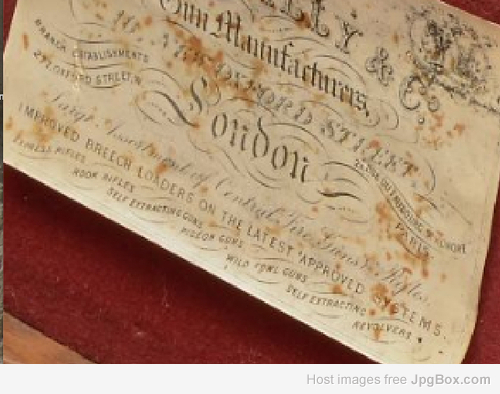 LLY & Co
Gun Manufacturers,
OXFORD STREET,
BRANCH ESTABLISHMENTS
OXFORD STREET, W.
London
PARIS
Large Assortment of Central Fire Guns & Rifles,
IMPROVED BREECH LOADERS ON THE LATEST APPROVED SYSTEMS.
EXPRESS RIFLES
ROOK RIFLES
SELF EXTRACTING GUNS
PIGEON GUNS
WILD FOWL GUNS
SELF EXTRACTING
REVOLVERS
Host images free JpgBox.com